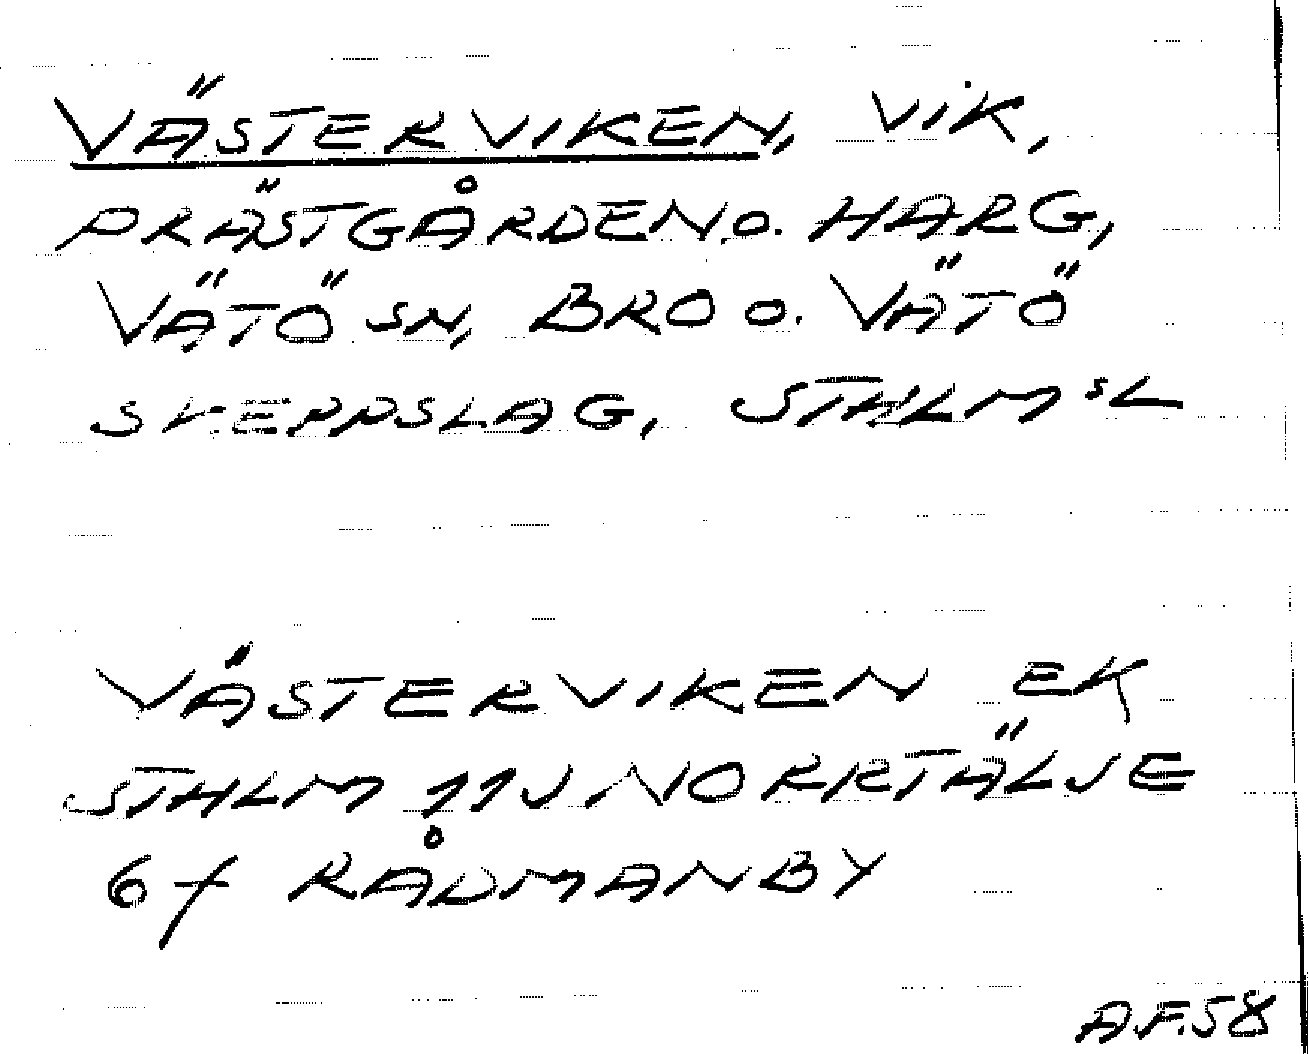 VÄSTERVIKEN, VIK,
PRÄSTGÅRDEN O. HARG,
VÄTÖ SN, BRO O. VÄTÖ
SKEPPSLAG, STHLMS L
VÄSTERVIKEN EK
STHLM 11J NORRTÄLJE
6f RÅDMANBY
A.F.58